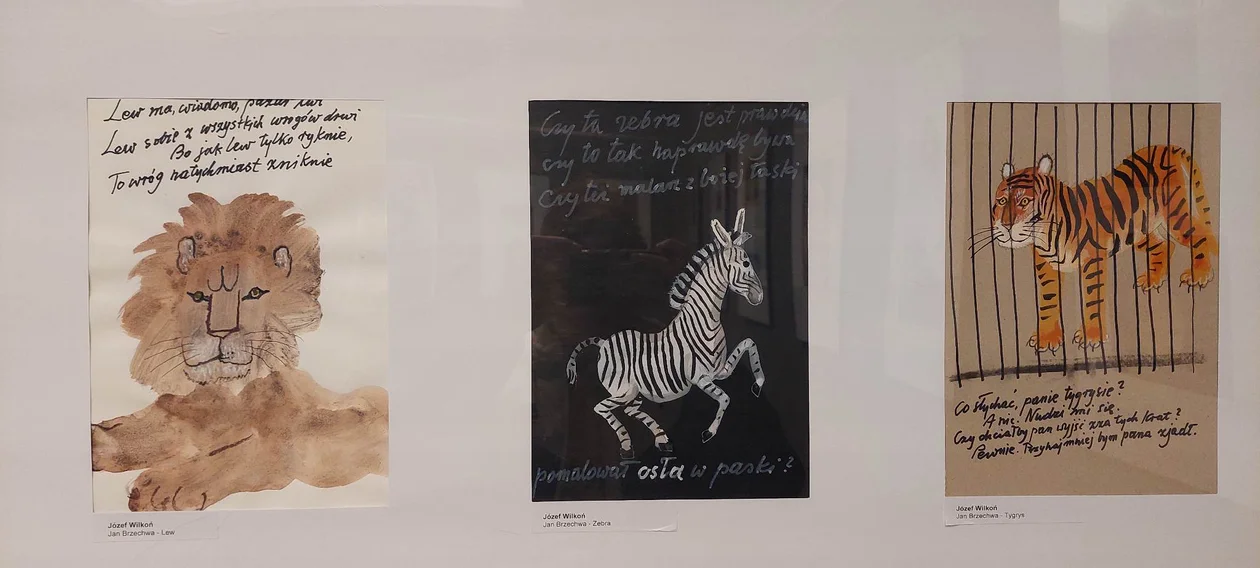 Lew ma, wiadomo, pazur lwi
Lew sobie z wszystkich wrogów drwi
Bo jak lew tylko ryknie,
To wróg natychmiast zniknie
Józef Wilkoń
Jan Brzechwa - Lew
Czy ta zebra jest prawdziwa
czy to tak naprawdę bywa
czy też malarz z bożej łaski
pomalował osła w paski?
Józef Wilkoń
Jan Brzechwa - Zebra
Co słychać, panie tygrysie?
A nic. Nudzi mi się.
Czy chciałby pan wyjść zza tych krat?
Pewnie. Przynajmniej bym pana zjadł.
Józef Wilkoń
Jan Brzechwa - Tygrys